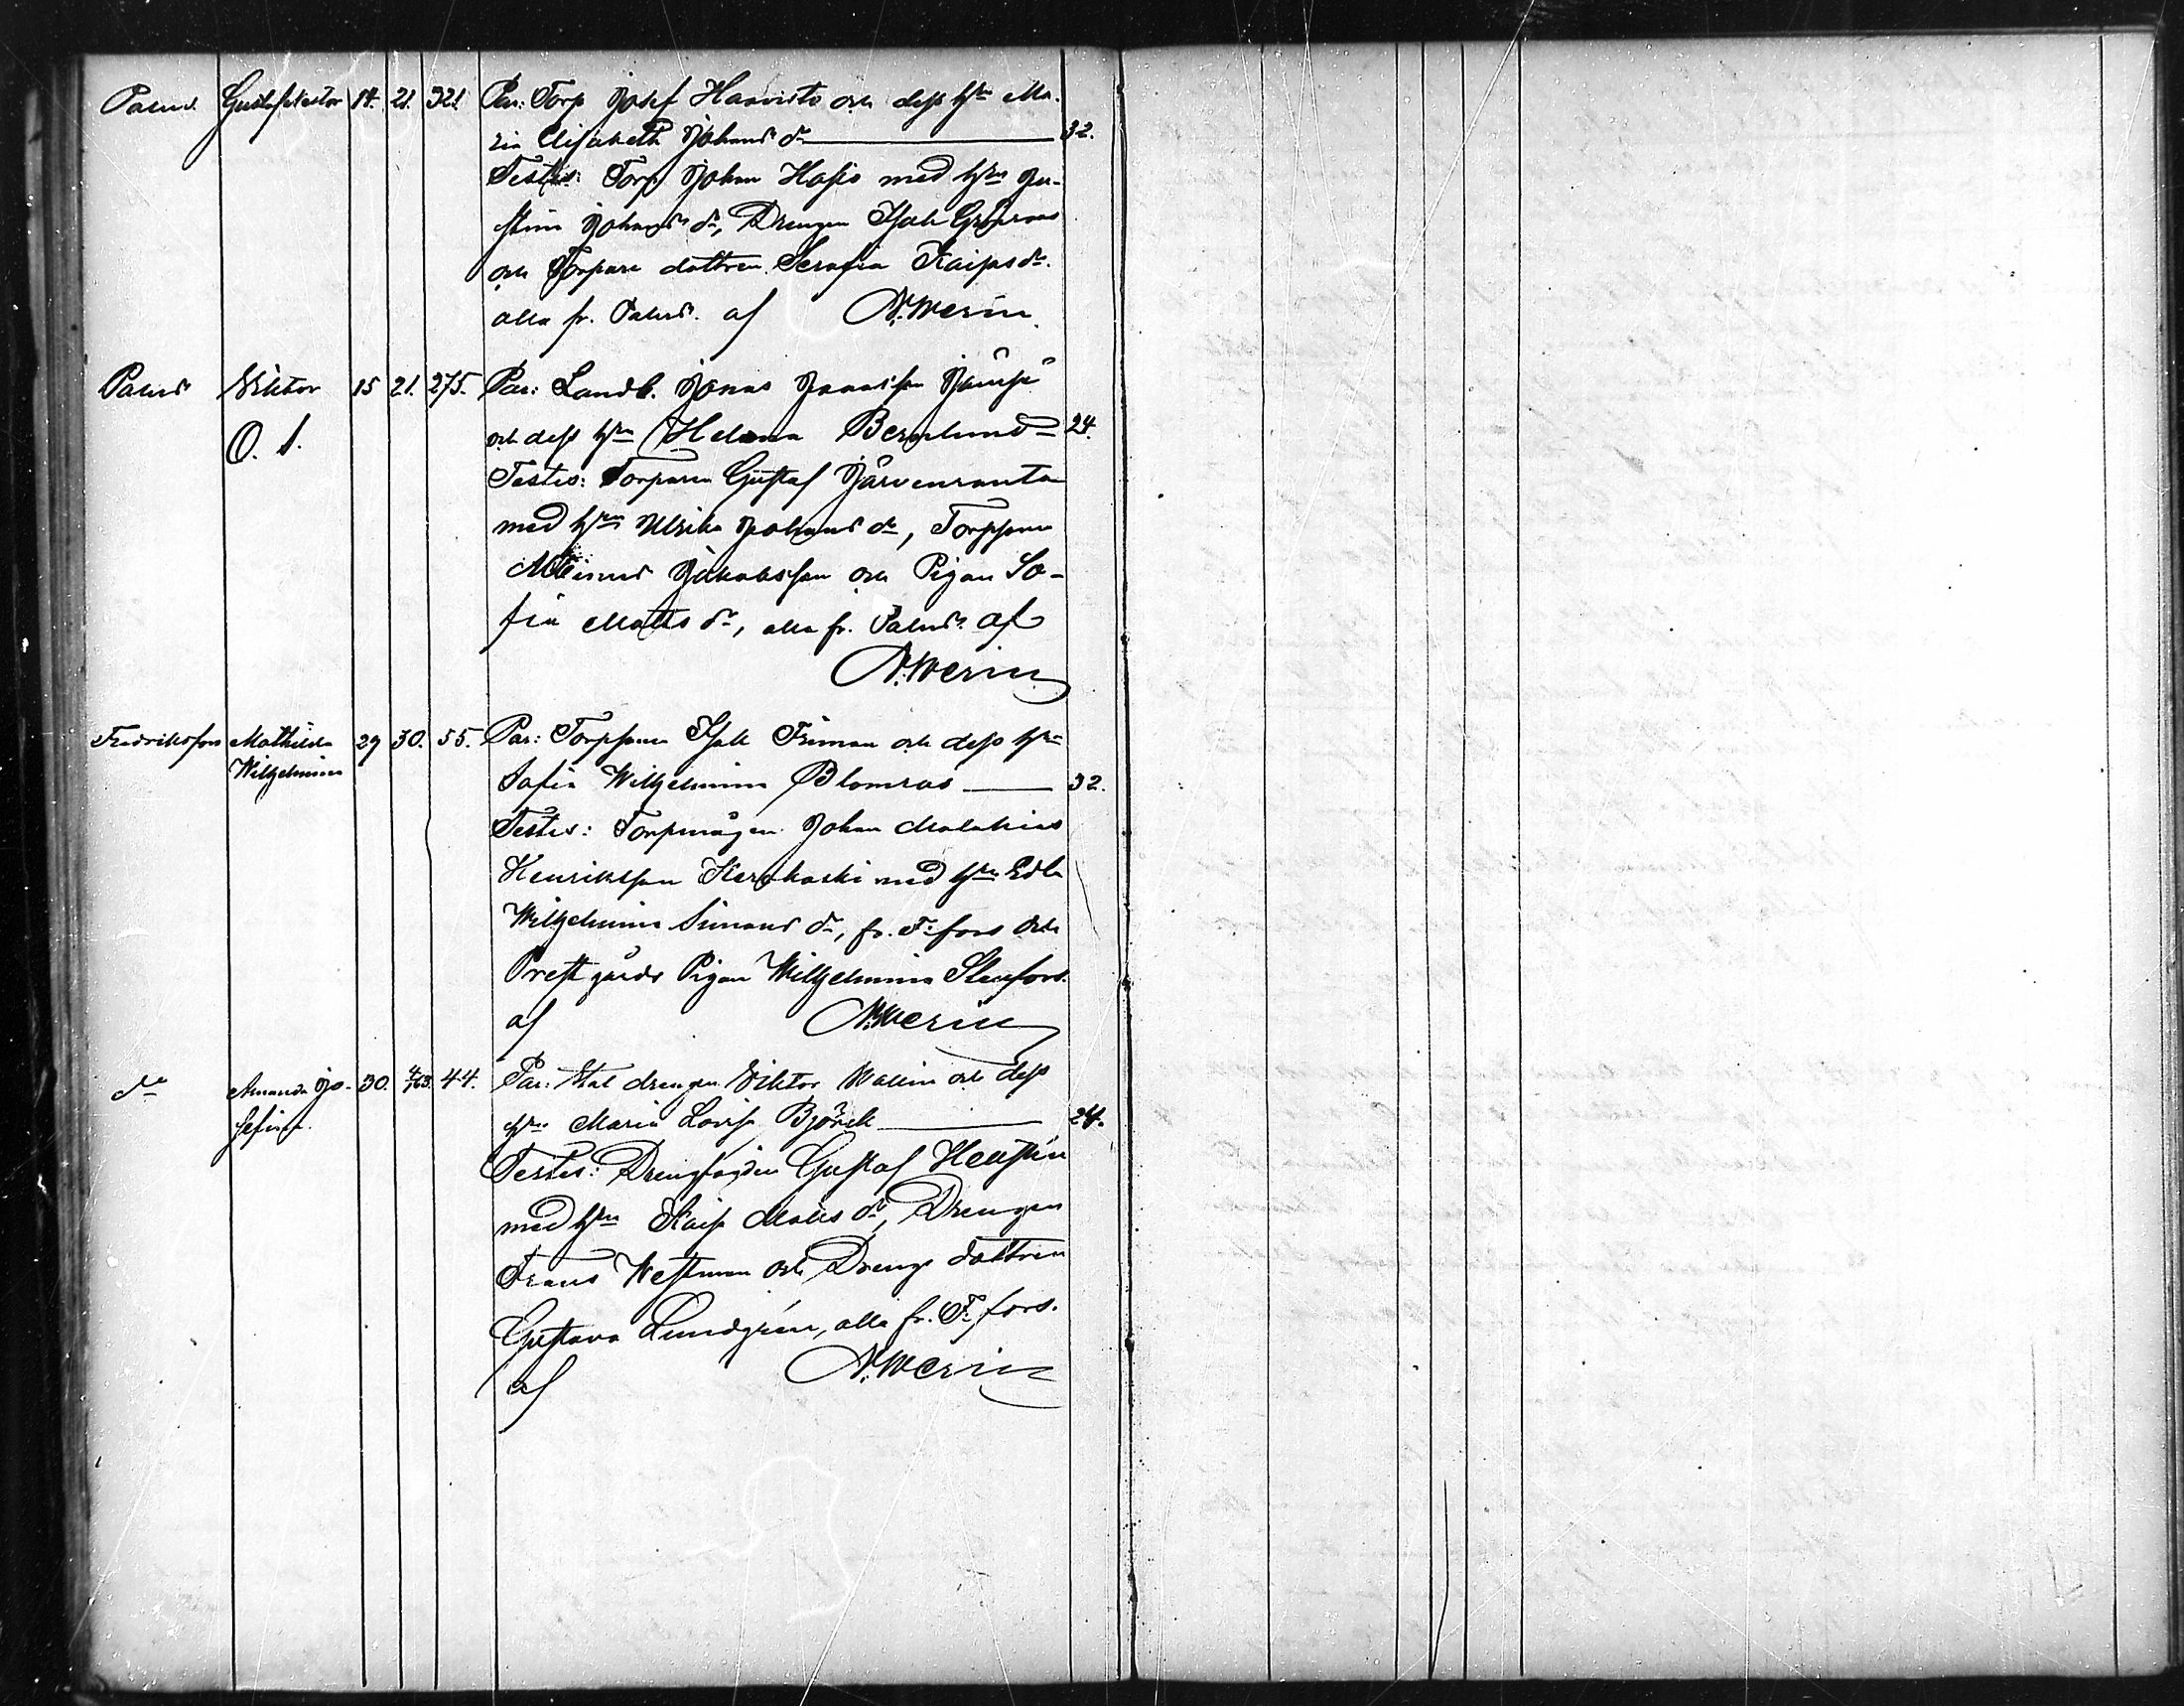 Palus Gustaf Nestor 14. 21. 321. Par: Torp Josef Haavisto och dess hru Ma-
ria Elisabeth Johans dr 32.
Testes: Torp Johan Hasio med hru Ju-
stina Johans dr, Drengen Isak
och Torpare dottren Serafia Kaisas dr.
alla fr. Palus. af N. Werin.
Palus Viktor 15 21. 275. Par: Landb. Jonas Jonasson
O. Ä. och dess hru Helena Berglund 24.
Testes: Torparen Gustaf Järvenranta
med hru Ulrika Johans dr, Torpsonen
Jakobsson och Pigan So-
fia Matts dr, alla fr. Palus af
N. Werin
Fredriksfors Mathilda 29 30. 55. Par: Torpsonen Isak Friman och dess hru
Wilhelmina
Sofia Wilhelmina Blomroos 32.
Testes: Torpmågen Johan Malakias
Henriksson med hru Edla
Wilhelmina Simons dr, fr. F:fors och
Prestgårds Pigan Wilhelmina Stenfors.
af N. Werin
dr Amanda Jo- 30. 4/63. 44. Par: Stat drengen Viktor Wallin och dess
sefina.
hru Maria Lovisa Björck 24.
Testes: Drengfogden Gustaf
med hru Kaisa Matts dr, Drengen
Frans Westman och Drengs dottren
Gustava Lundgrén, alla fr. F:fors.
af N. Werin